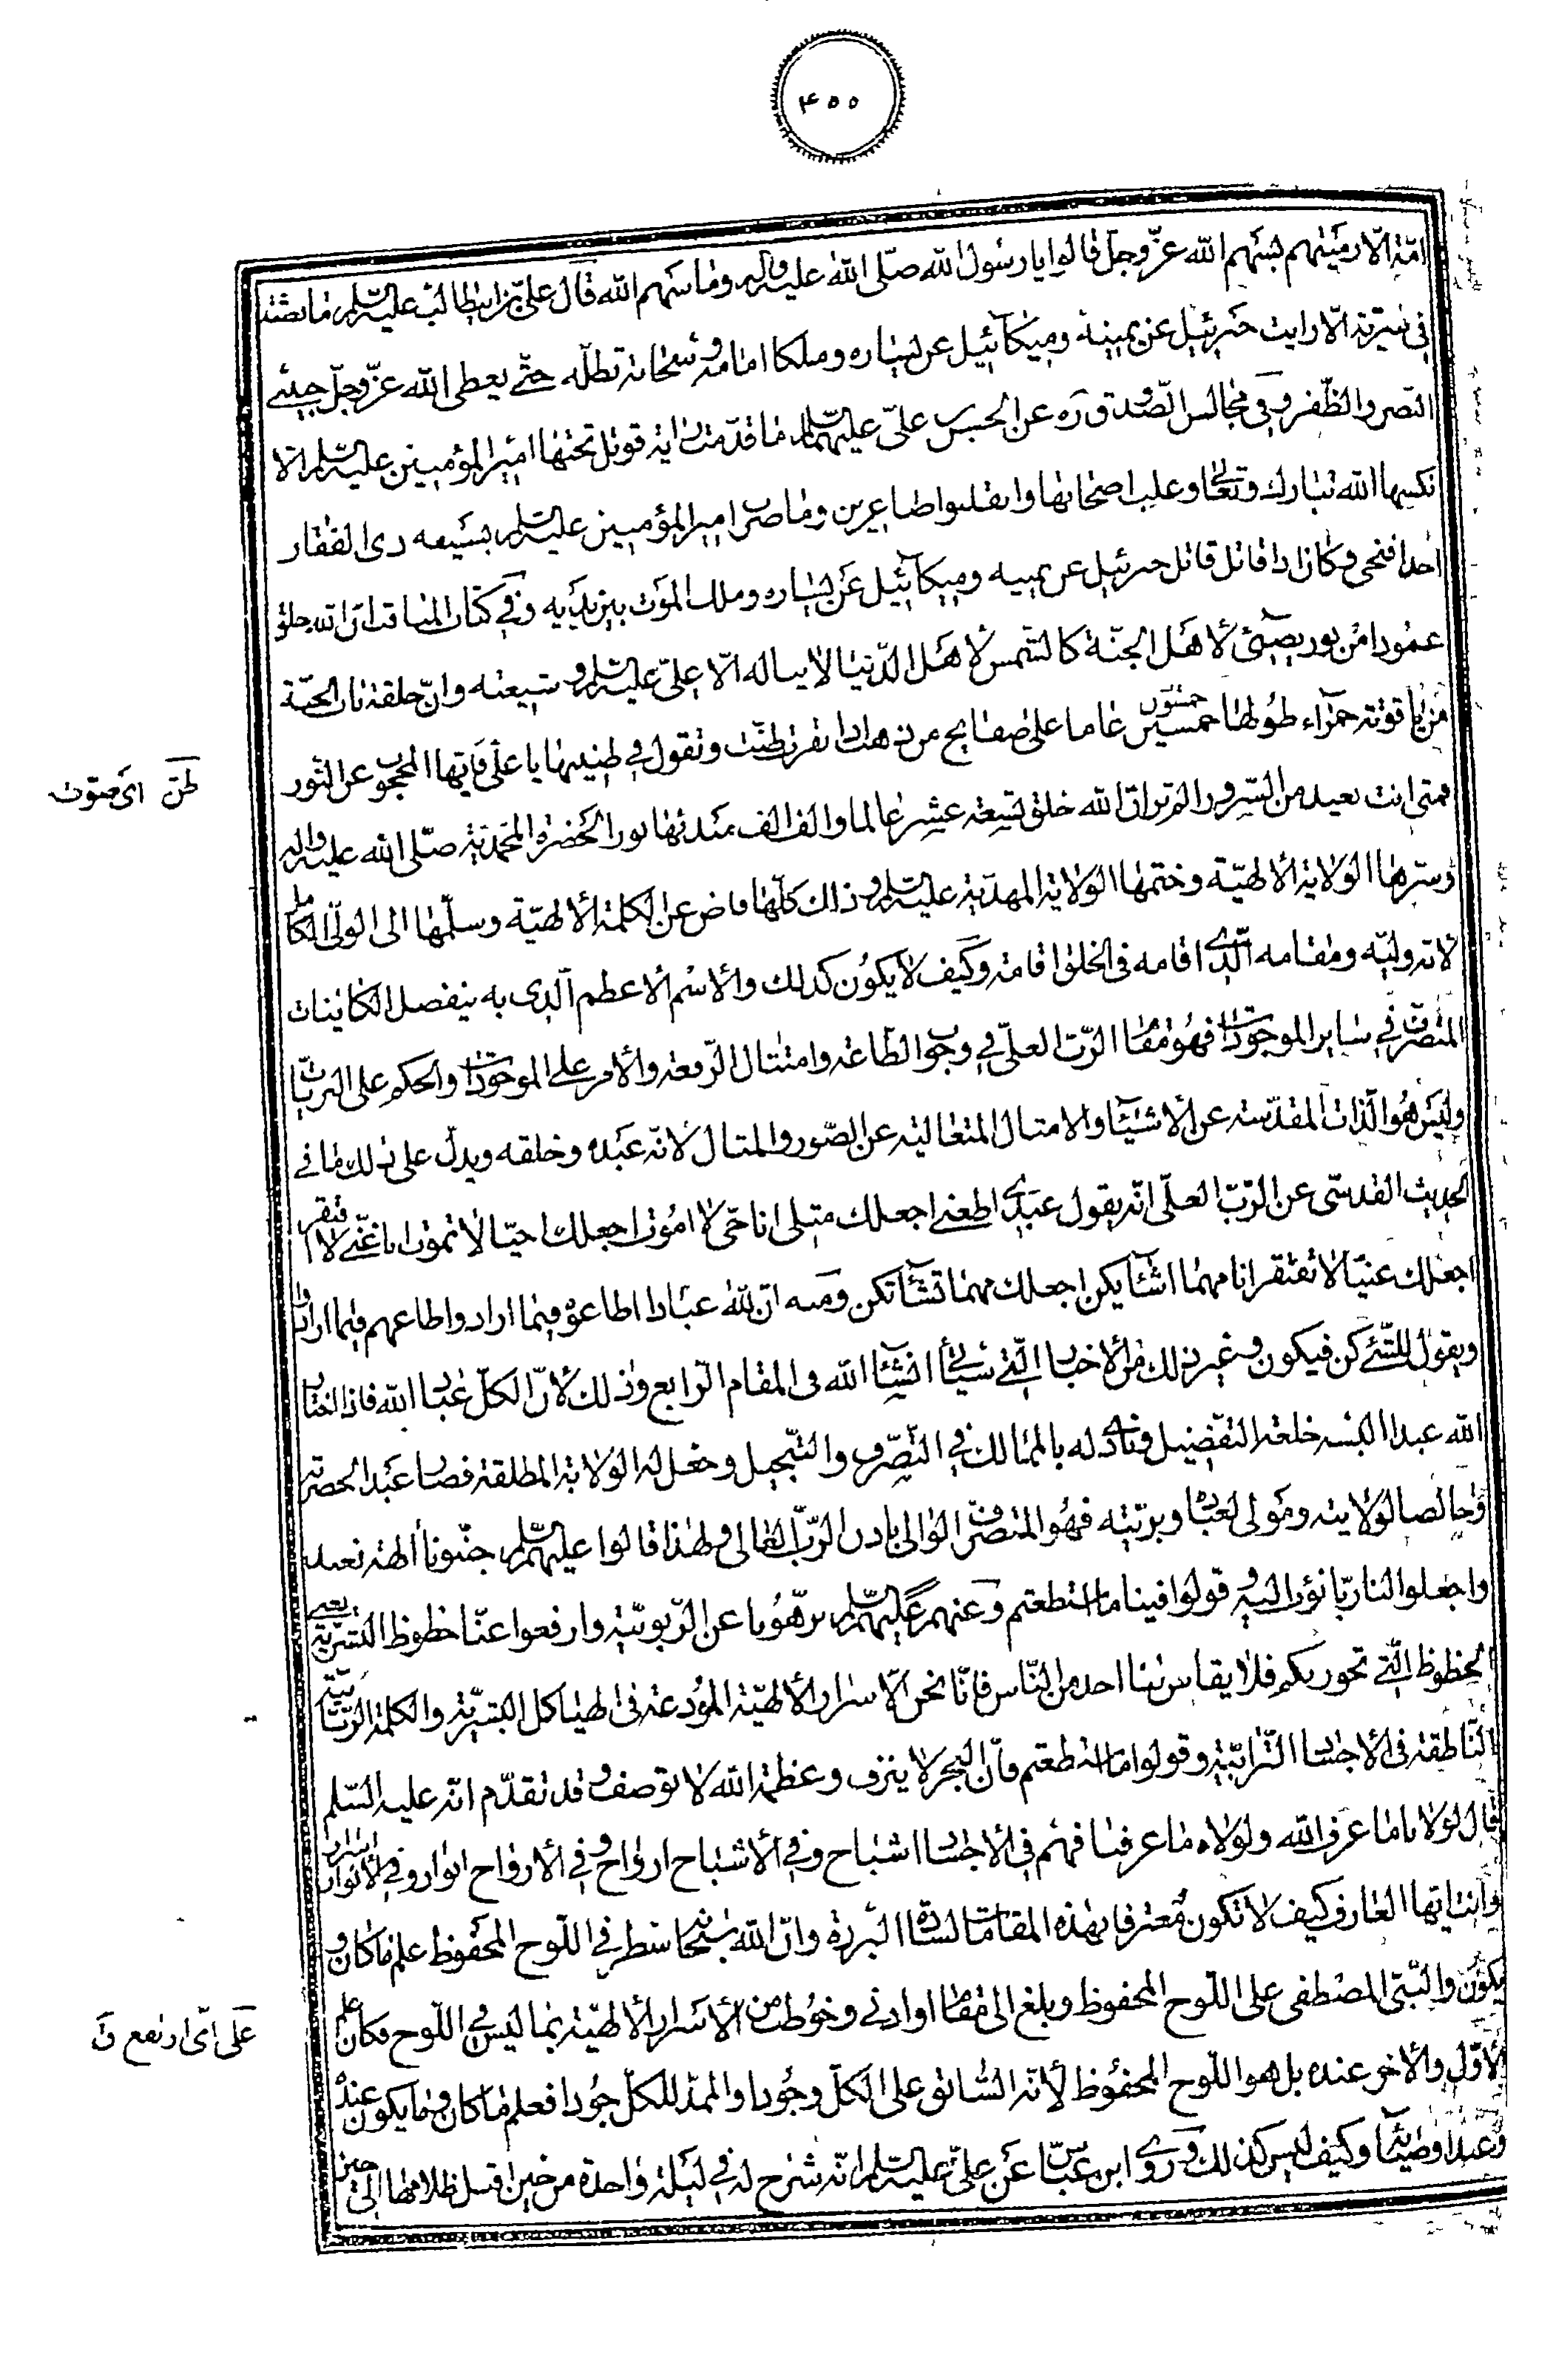 ٤٥٥
امّة الّا رميتهم بسهم الله عزّ وجل قالوا يا رسول الله صلّى الله عليه واله وما سهم الله قال علىّ بن ابيطالب عليه السلم ما بعثته
فى سريّة الّا رايت جبرئيل عن يمينه وميكآئيل عن يساره وملكا امامه وسحابة تظلّه حتّى يعطى الله عزّ وجلّ حبيبى
النّصر والظّفر وفى مجالس الصّدوق ره عن الحسن بن علىّ عليهما السلم ما قدّمت راية قوتل تحتها امير المؤمنين عليه السلم الّا
نكسها الله تبارك وتعالى وغلب اصحابها وانقلبوا صاغرين وما ضرب امير المؤمنين عليه السلم بسيفه ذى الفقار
احدا فنجى وكان اذا قاتل قاتل جبرئيل عن يمينه وميكآئيل عن يساره وملك الموت بين يديه وفى كتاب المناقب انّ الله خلق
عمودا من نور يضيئ لأهل الجنّة كالشّمس لأهل الدّنيا لا يناله الّا علىّ عليه السلم وشيعته وانّ حلقة باب الجنّة
من ياقوتة حمرآء طولها خمسين خمسون عاما على صفايح من ذهب اذا نقرت طنّت وتقول فى طنينها يا علىّ فايّها المحجوب عن النّور
فمتى انت بعيد من السّرور الم تر انّ الله خلق تسعة عشر عالما والف الف مبدئها نور الحضرة المحمّديّة صلّى الله عليه واله
وسرّها الولاية الألهيّة وختمها الولاية المهديّة عليه السلم وذلك كلّها فاض عن الكلمة الألهيّة وسلّمها الى الولىّ الكامل
لأنّه وليّه ومقامه الّذى اقامه فى الخلق اقامة وكيف لا يكون كذلك والأسم الأعظم الّذى به ينفصل الكاينات
المتصرّف فى ساير الموجودات فهو مقام الرّبّ العلىّ فى وجوب الطّاعة وامتثال الرّفعة والأمر على الموجودات والحكم على البريّات
وليس هو الذّات المقدّسة عن الأشيآء والامثال المتعالية عن الصّور والمثال لأنّه عبده وخلقه ويدلّ على ذلك ما فى
الحديث القدسّى عن الرّبّ العلىّ انّه يقول عبدى اطعنى اجعلك مثلى انا حىّ لا اموت اجعلك حيّا لا تموت انا غنىّ لا افتقر
اجعلك غنيّا لا تفتقر انا مهما اشآء يكن اجعلك مهما تشآء تكن ومنه انّ لله عبادا اطاعوه فيما اراد واطاعهم فيما ارادوا
ويقول للشّئ كن فيكون وغير ذلك من الأخبار الّتى سيأتى انشآء الله فى المقام الرّابع وذلك لأنّ الكلّ عباد الله فاذا اختار
الله عبدا البسه خلعة التفضيل ونادى له بالممالك فى التّصرّف والتّبجيل وجعل له الولاية المطلقة فصار عبدا لحضرته
وخالصا لولايته ومولى لعباده وبريّته فهو المتصرّف الوالى باذن الرّبّ المتعالى ولهذا قالوا عليهم السلم جنّبونا ألهة تعبد
واجعلوا لنا ربّا نؤب اليه وقولوا فينا ما استطعتم وعنهم عليهم السّلم نزّهونا عن الرّبوبيّة وارفعوا عنّا حظوظ البشريّة يعنى
الحظوظ الّتى تجوز بكم فلا يقاس بنا احد من النّاس فإنّا نحن الأسرار الألهيّة المودعة فى الهياكل البشريّة والكلمة الرّبّانيّة
النّاطقة فى الأجساد التّرابيّة وقولوا ما استطعتم فانّ البحر لا ينزف وعظمة الله لا توصف وقد تقدّم انّه عليه السّلم
قال لولانا ما عرف الله ولولاه ما عرفنا فهم فى الأجساد اشباح وفى الأشباح ارواح وفى الأرواح انوار وفى الأنوار اسرار
وانت ايّها العارف كيف لا تكون معترفا بهذه المقامات لسادة البررة وانّ الله سبحانه سطر فى اللّوح المحفوظ علم ما كان وما
يكون والنّبىّ المصطفى على اللّوح المحفوظ وبلغ الى مقام او ادنى وخوطب من الأسرار الألهيّة بما ليس فى اللّوح فكان علم
الأوّل والأخر عنده بل هو اللّوح المحفوظ لأنّه السّابق على الكلّ وجودا والممدّ للكلّ جودا فعلم ما كان وما يكون عنده
وعند اوصيائه وكيف ليس كذلك وروى ابن عبّاس عن علىّ عليه السلم انّه شرح له فى ليلة واحدة من حين اقبل ظلامها الى حين
طنّ اى صوّت
على اى ارتفع ق